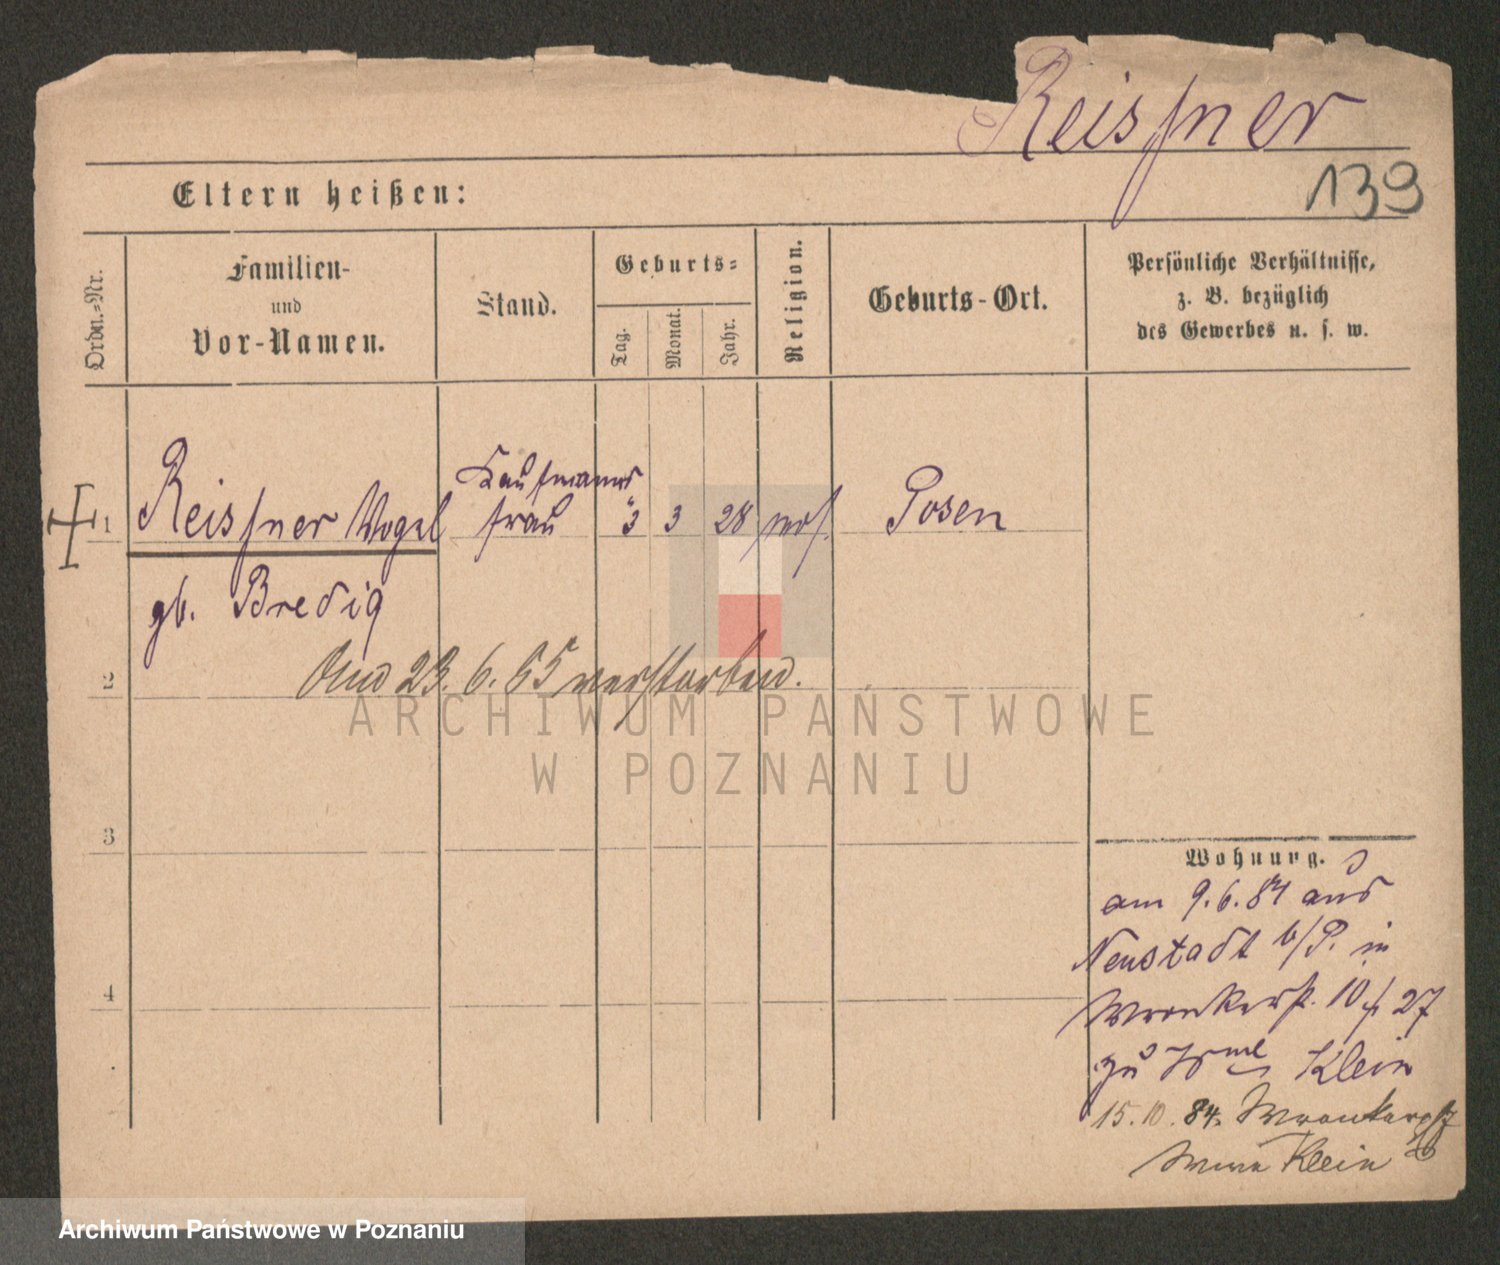 Reissner
139
Eltern heißen:
Ordn.-Nr.
Familien-
und
Vor-Namen.
Stand.
Geburts-
Tag.
Monat.
Jahr.
Religion.
Geburts-Ort.
Persönliche Verhältnisse,
z. B. bezüglich
des Gewerbes u. s. w.
1
Reissner Vogel
gb. Bredig
Kaufmanns
frau
3 3 28 mos.
Posen
2
23. 6. verstorben.
3
4
Wohnung.
am 9.6.84 aus
Neustadt b/P. in
Wronkerst. 10 27
zu Klein
15.10.84. Wronkerstr
Klein
ARCHIWUM PAŃSTWOWE
W POZNANIU
Archiwum Państwowe w Poznaniu